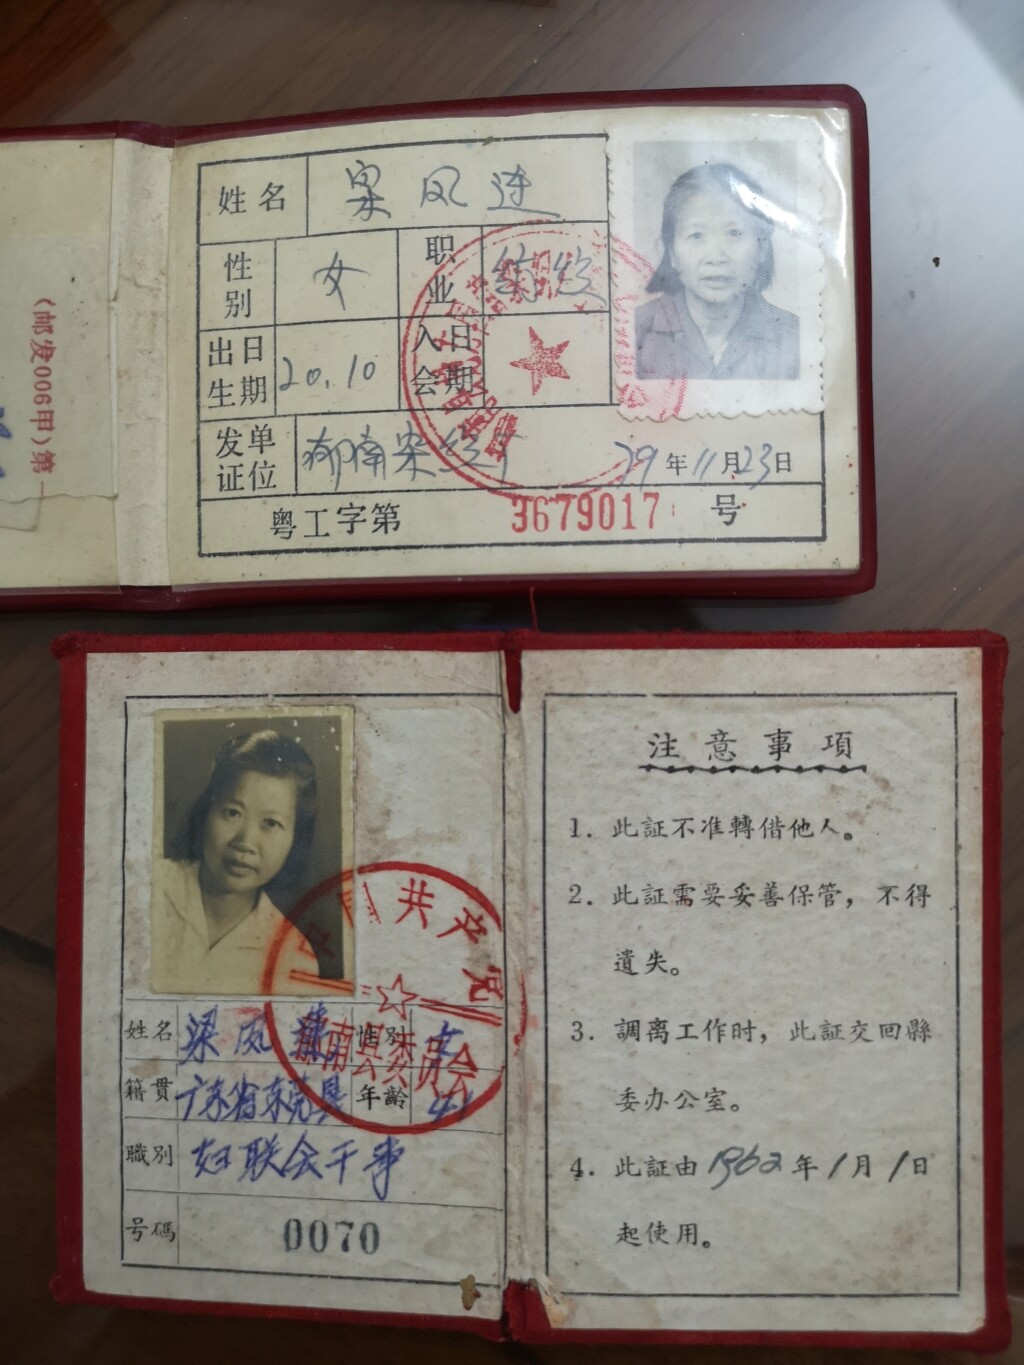 (邮发006甲)第一
姓名 梁凤连
性别 女 职业
出生日期 20.10 入会日期
发证单位 郁南朵丝厂 79年11月23日
粤工字第 3679017 号
共产党
南县委员会
姓名 梁凤莲 性别 女
籍贯 广东省东莞县 年龄 41
職別 妇联会干事
号碼 0070
注意事項
1. 此証不准轉借他人。
2. 此証需要妥善保管，不得
遺失。
3. 調离工作时，此証交回縣
委办公室。
4. 此証由1962年1月1日
起使用。